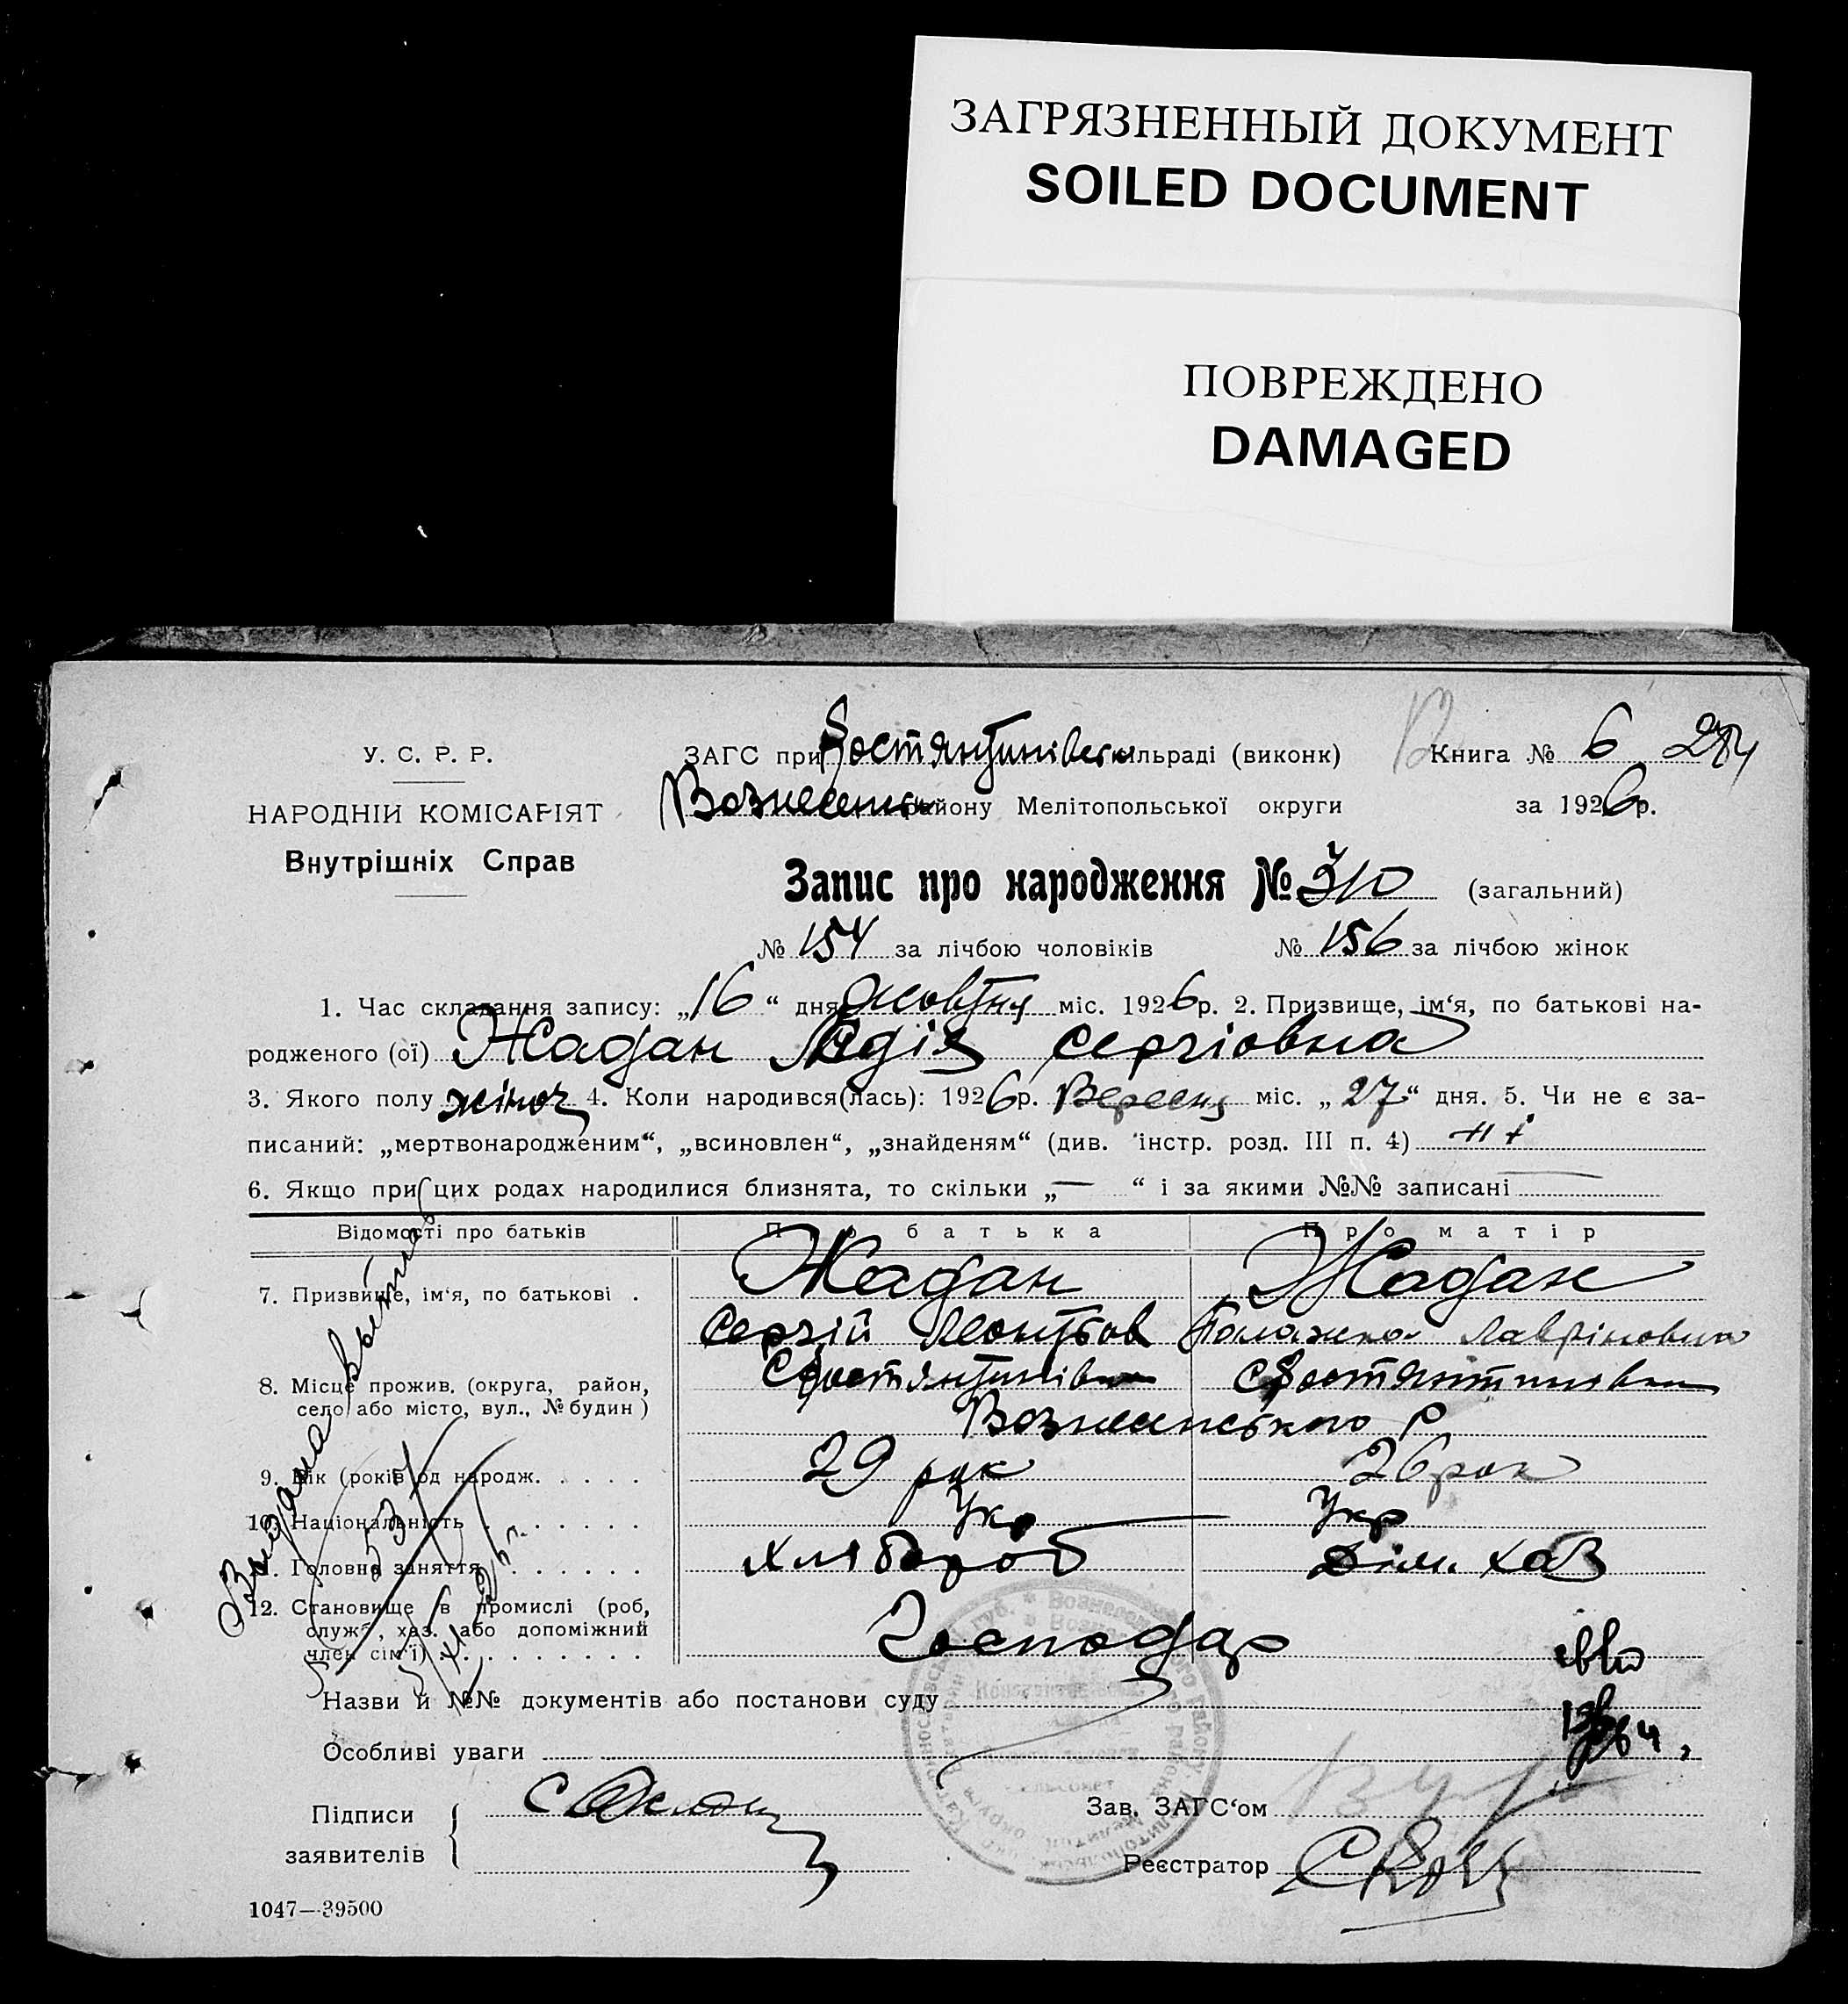 ЗАГРЯЗНЕННЫЙ ДОКУМЕНТ
SOILED DOCUMENT
ПОВРЕЖДЕНО
DAMAGED
У. С. Р. Р.
НАРОДНІЙ КОМІСАРІЯТ
Внутрішніх Справ
ЗАГС при Костянтинівськ ильраді (виконк) Книга № 6 284
Вознесенськ району Мелітопольської округи за 1926 р.
Запис про народження № 310 (загальний)
№ 154 за лічбою чоловіків № 156 за лічбою жінок
1. Час складання запису: „16“ дня жовтня міс. 1926 р. 2. Призвище, ім‘я, по батькові на-
родженого (ої) Жадан Лідія Сергіовна
3. Якого полу жіноч 4. Коли народився(лась): 1926 р. Вересня міс. „27“ дня. 5. Чи не є за-
писаний: „мертвонародженим“, „всиновлен“, „знайденям“ (див. інстр. розд. III п. 4) ні
6. Якщо при цих родах народилися близнята, то скільки „—“ і за якими №№ записані —
Відомості про батьків Про батька Про матір
7. Призвище, ім‘я, по батькові . Жадан Жадан
Сергій Леонтьов Лавріновна
8. Місце прожив. (округа, район,
село або місто, вул., № будин) С Костянтинівка С Костянтинівка
Вознесенського р
9. Вік (років од народж. . . . . 29 рок 26 рок
10. Національність . . . . . . . Укр Укр
11. Головне заняття . . . . . . Хлібороб Дім. хаз
12. Становище в промислі (роб,
служб, хаз. або допоміжний
член сім‘ї) . . . . . . . . . Господар
Назви й №№ документів або постанови суду
Особливі уваги
Підписи
заявителів
Зав. ЗАГС‘ом
Реєстратор
1047—39500